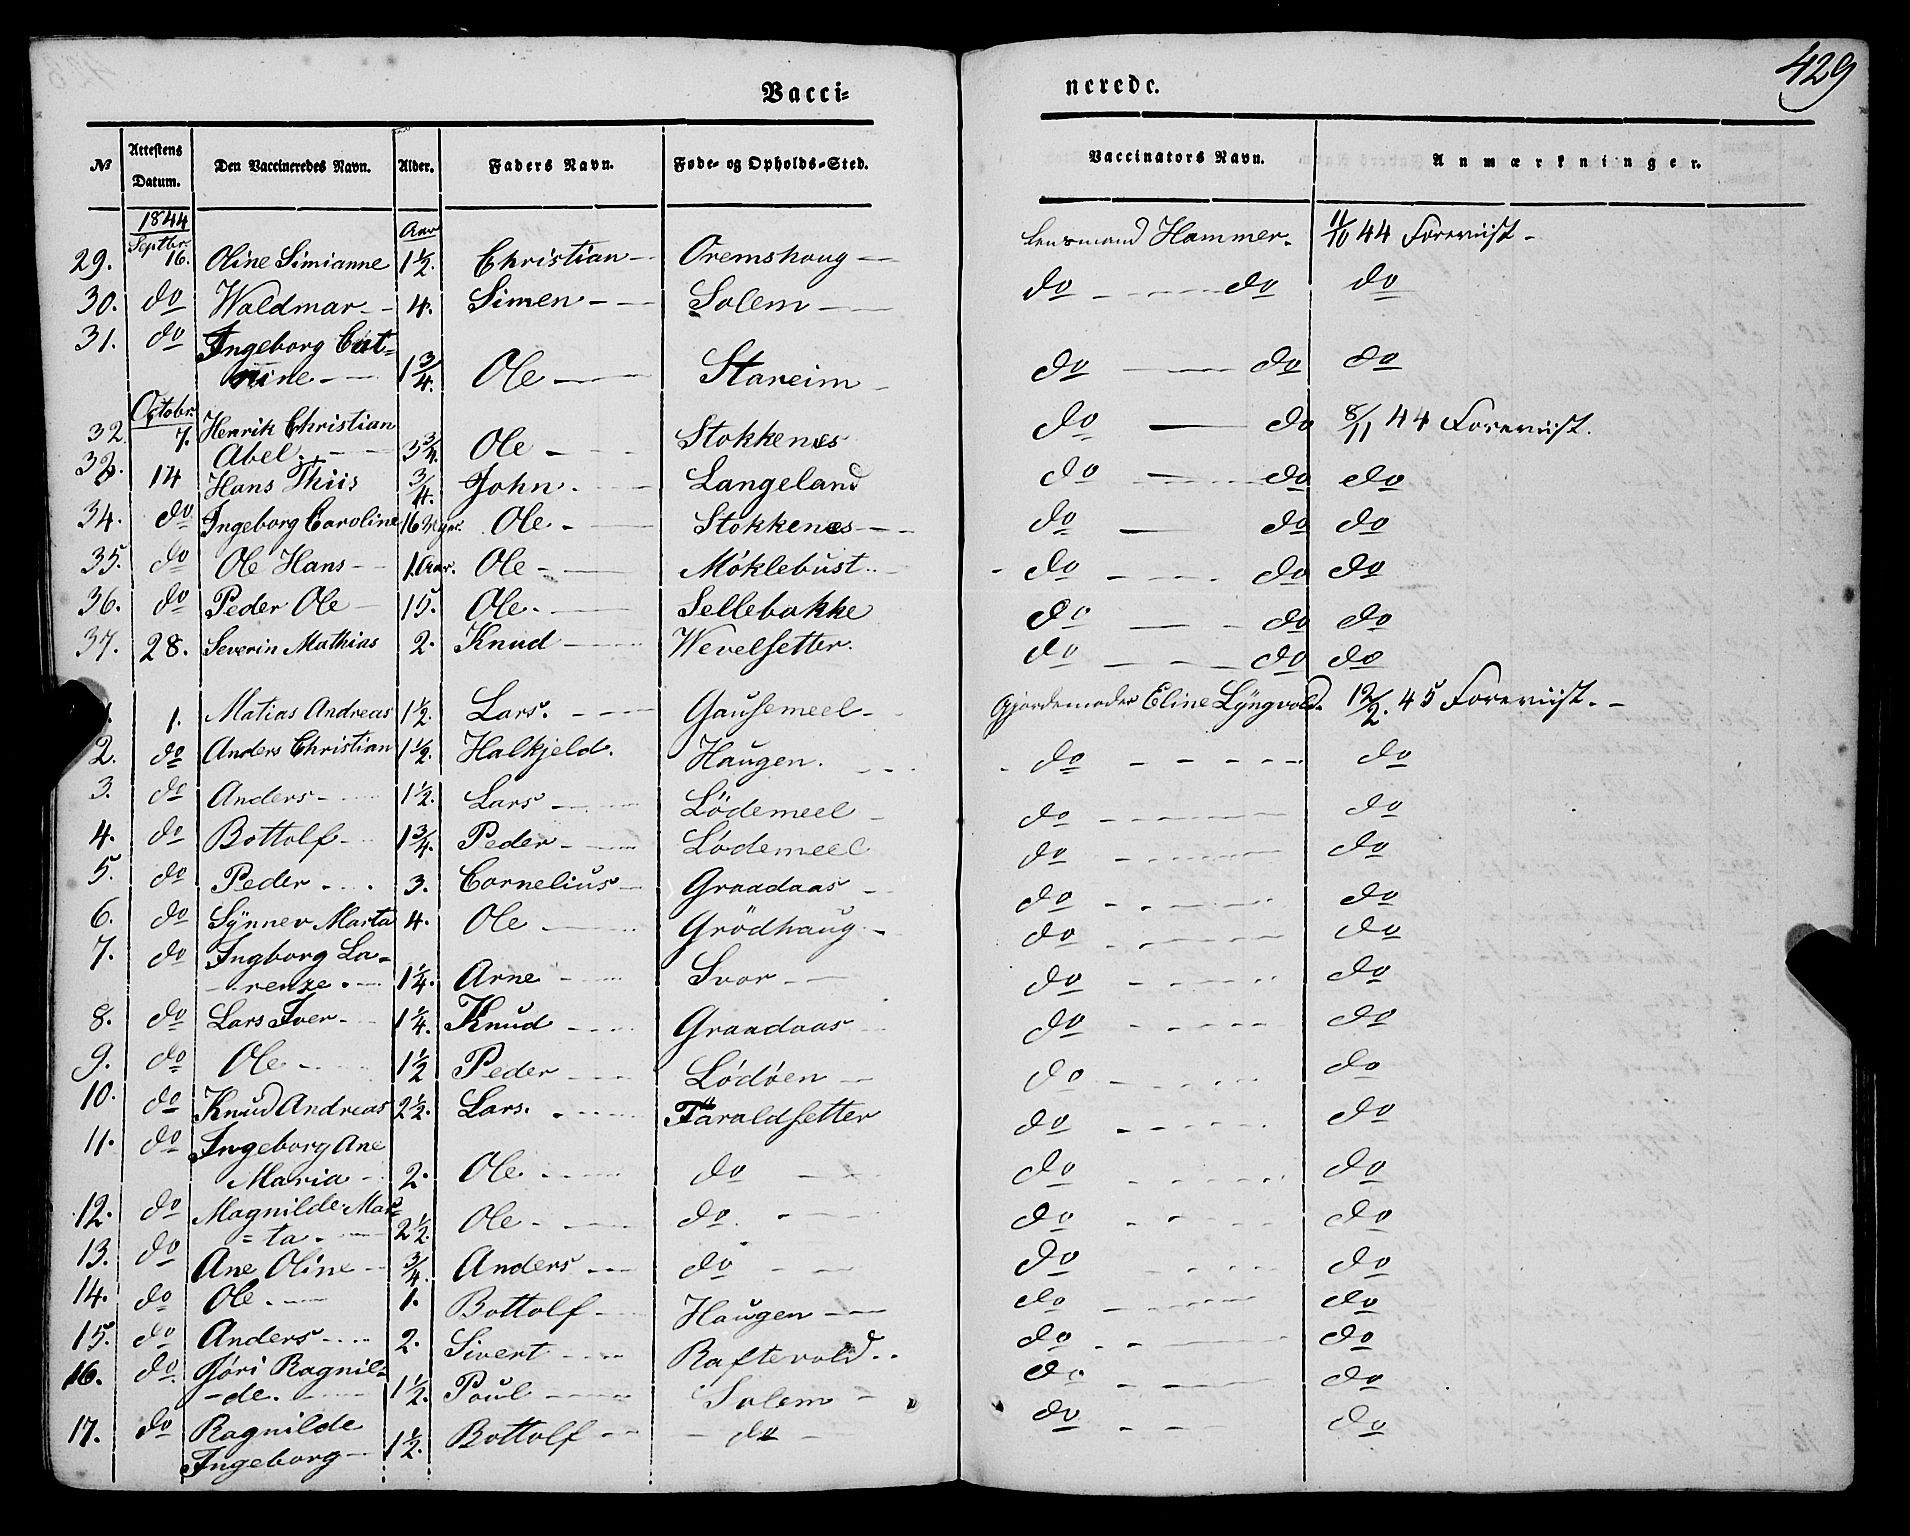 429
Vacci- nerede.
№ Attestens Datum. Den Vaccineredes Navn. Alder. Faders Navn. Føde- og Opholds-Sted. Vaccinators Navn. Anmærkninger.
1844 Aar
Septbr
29. 16. Oline Simianne 1 1/2. Christian Oremshoug Lensmand Hammer. 11/10 44 Foreviist
30. do Waldmar 4. Simen Solem do do do
31. do Ingeborg Cat-
rine 1 3/4. Ole Stareim do do do
Octobr.
32 7. Henrik Christian
Abel. 3 3/4. Ole Stokkenes do do 8/11 44 Foreviist.
32. 14 Hans Thiis 3/4. John. Langeland do do do
34. do Ingeborg Caroline 16 Ole Stokkenes do do do
35. do Ole Hans 1 Aar. Ole Möklebust do do do
36. do Peder Ole 15. Ole. Sellebakke do do do
37. 28. Severin Mathias 2. Knud Wevelsetter. do do do
1. Matias Andreas 1 1/2. Lars. Gausemeel Gjordemoder Eline Lÿngvold. 12/2. 45 Foreviist.
2. do Anders Christian 1 1/2. Halkjeld. Haugen. do do
3. do Anders 1 1/2. Lars Lödemeel do do
4. do Bottolf 1 3/4. Peder Lödemeel do do
5. do Peder 3. Cornelius Graadaas do do
6. do Sÿnnev Marta 4. Ole Grödhaug do do
7. do Ingborg La-
renze. 1 1/4. Arne Svor do do
8. do Lars Iver 1 1/4. Knud Graadaas do do
9. do Ole 1 1/2 Peder Lödöen do do
10. do Knud Andreas 2 1/2. Lars. Taraldsetter do do
11. do Ingeborg Ane
Maria 2. Ole do do do
12. do Magnilde Mar-
ta. 2 1/2. Ole do do do
13. do Ane Oline 3/4. Anders do do do
14. do Ole. 1. Bottolf Haugen do do
15. do Anders 2. Sivert Raftevold do do
16. do. Jöri Ragnil-
de. 1 1/2. Poul Solem do do
17. do Ragnilde
Ingeborg 1 1/2. Bottolf do do do